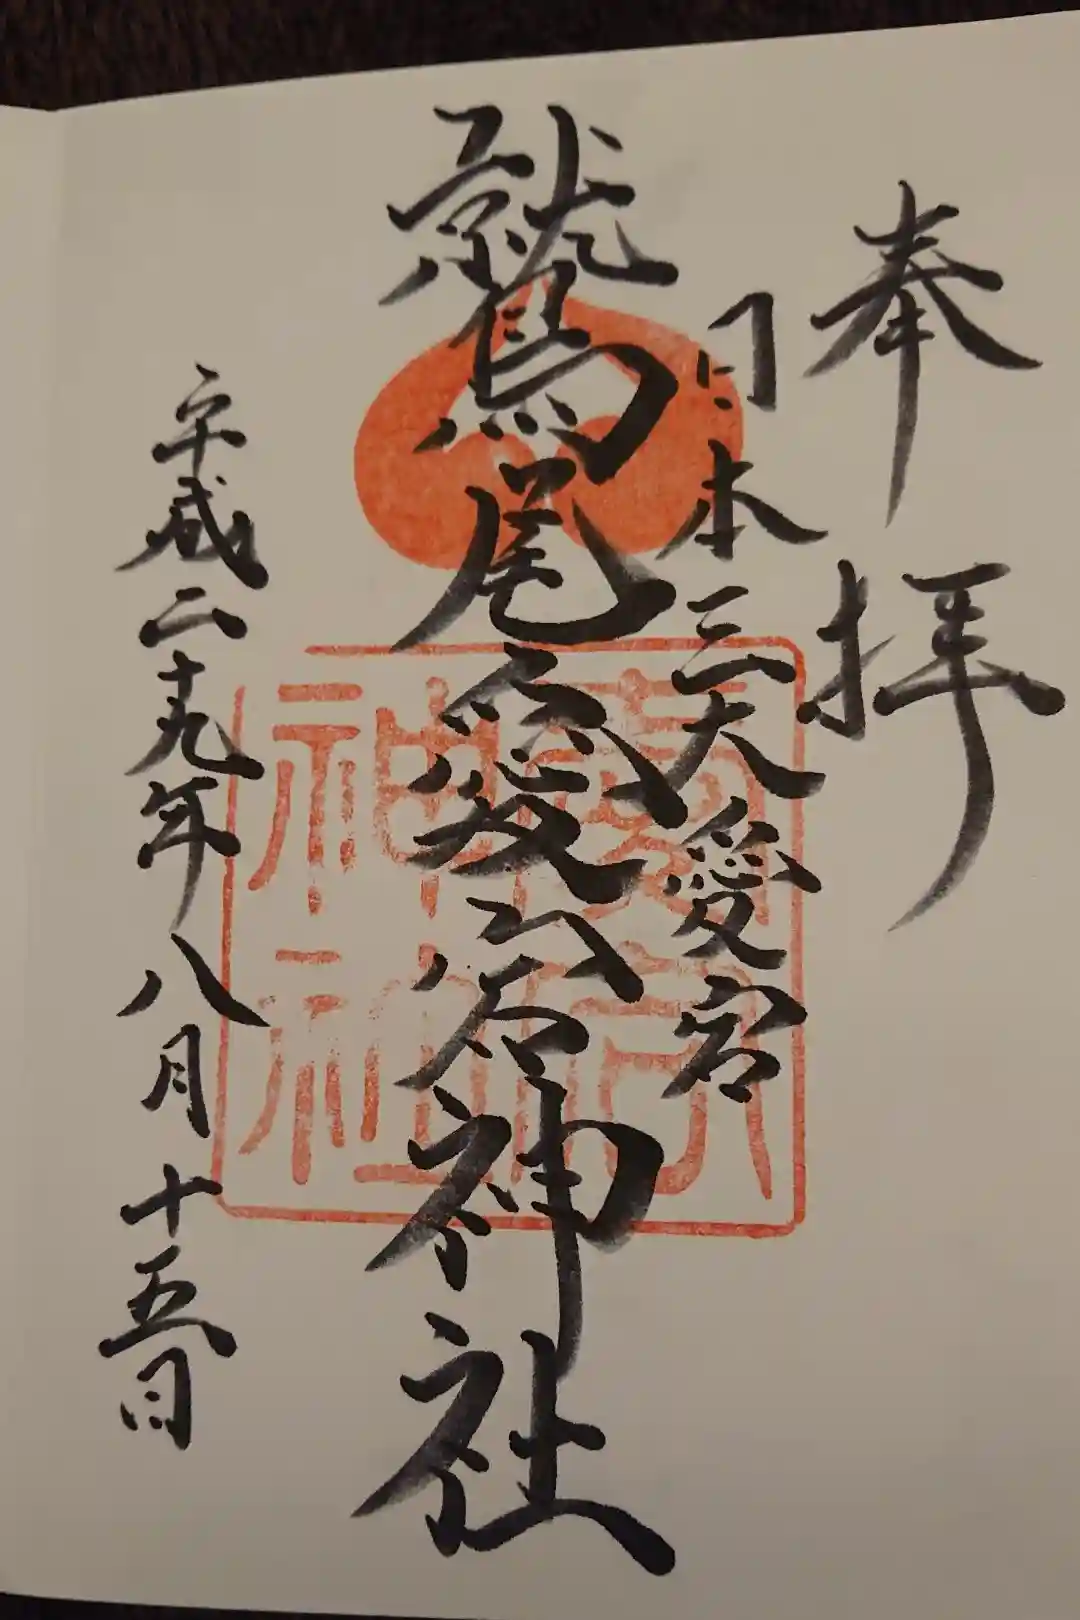 奉拝
日本三大愛宕
鷲尾愛宕神社
平成二十九年八月十五日
愛宕神社